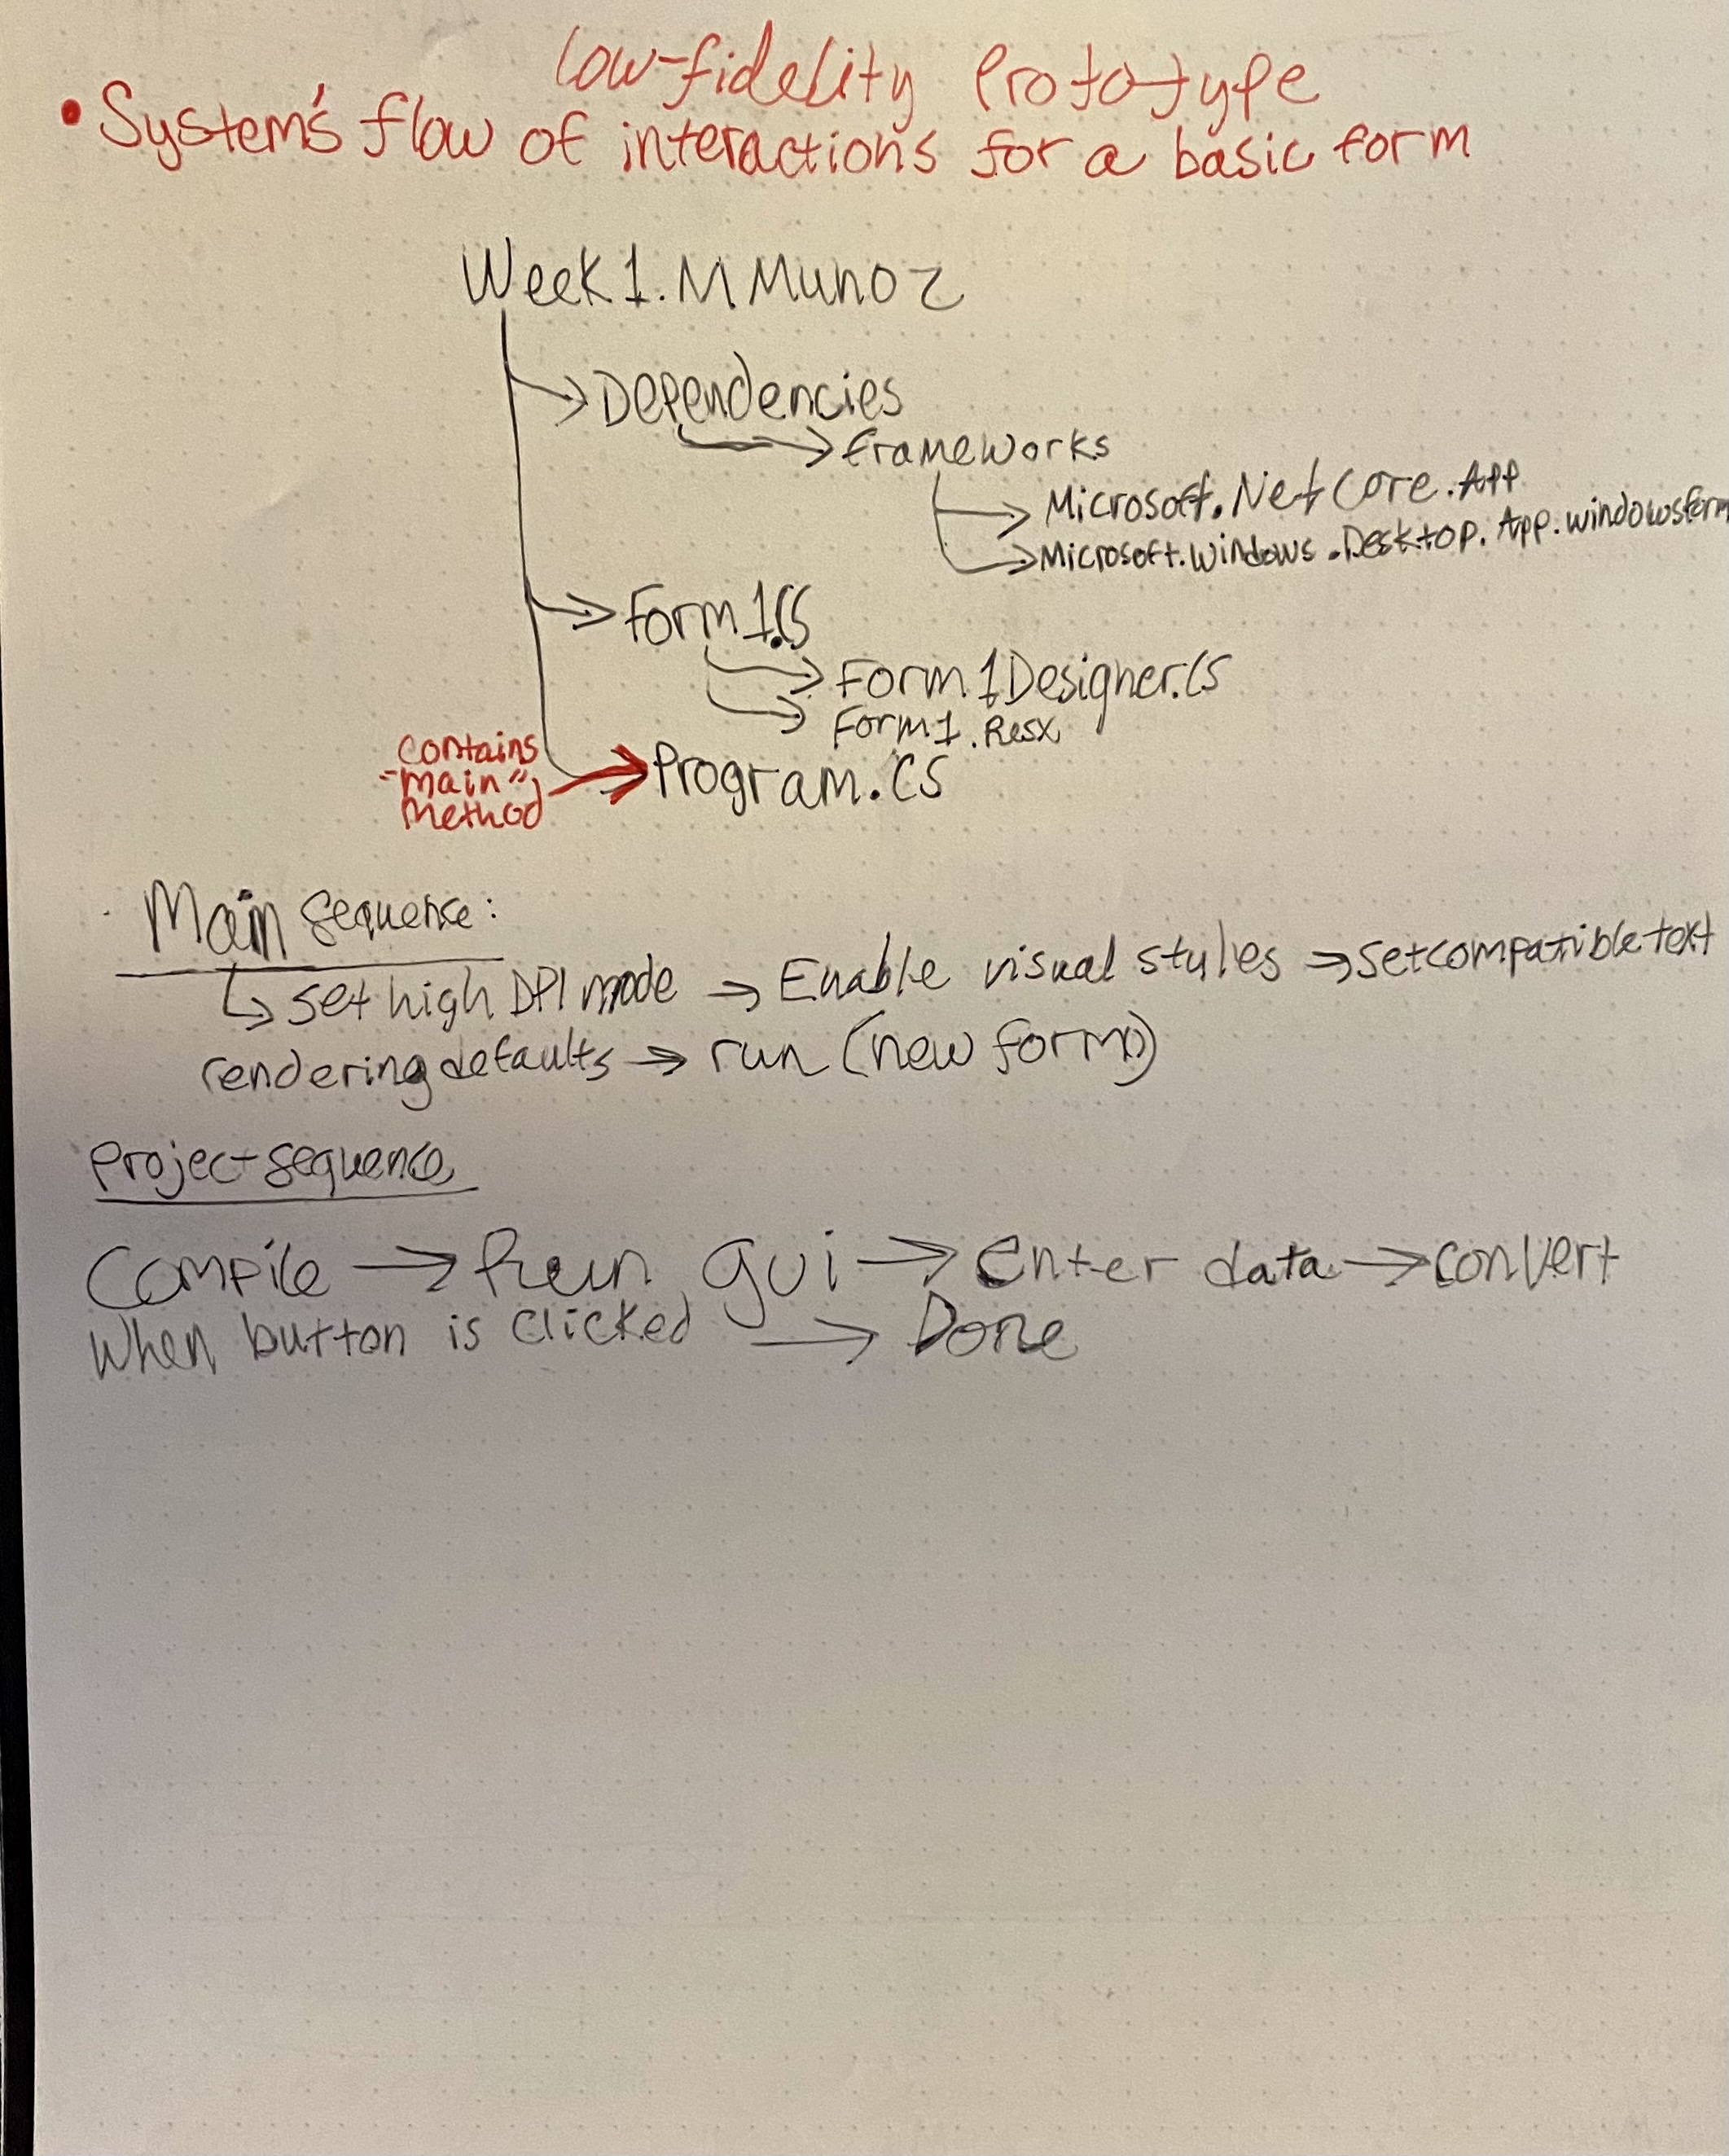 low-fidelity Prototype
• System's flow of interactions for a basic form
Week1.MMunoz
Dependencies
frameworks
Microsoft.NetCore.App
Microsoft.Windows.Desktop.App.windowsform
Form1.CS
Form1Designer.CS
Form1.Resx
contains
"main"
method
Program.CS
Main sequence:
↳ set high DPI mode → Enable visual styles → setcompatibletext
rendering defaults → run (new form())
Project sequence
Compile → Run gui → Enter data → convert
When button is clicked → Done